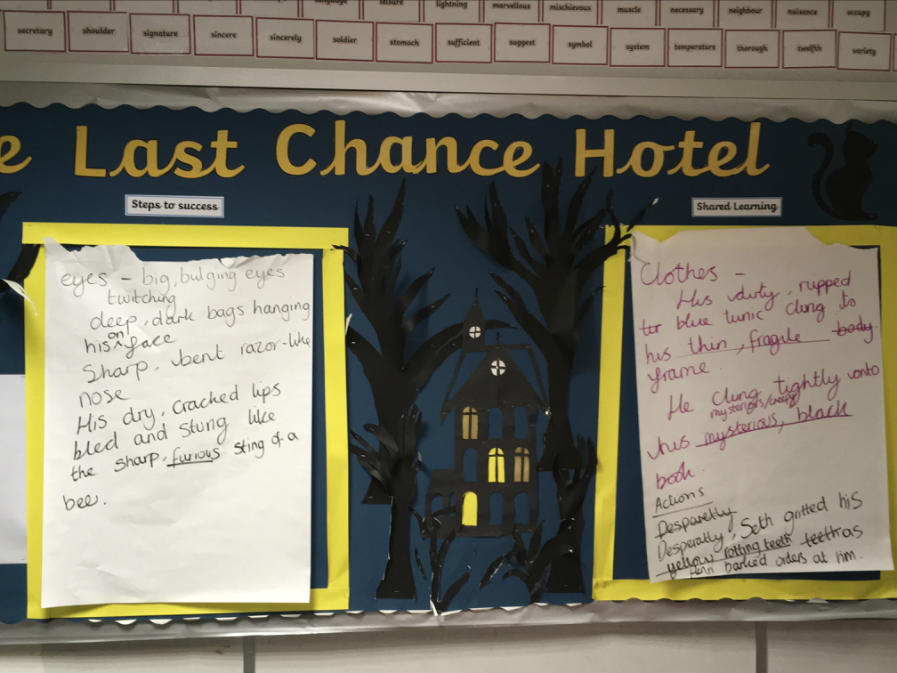 language leisure lightning marvellous mischievous muscle necessary neighbour nuisance occupy
secretary shoulder signature sincere sincerely soldier stomach sufficient suggest symbol system temperature thorough twelfth variety
e Last Chance Hotel
Steps to success
eyes – big, bulging eyes
twitching
deep, dark bags hanging
on
his ^ face
Sharp, bent razor-like
nose
His dry, cracked lips
bled and stung like
the sharp, furious sting of a
bee.
Shared Learning
Clothes –
His dirty, rupped
tor blue tunic clung to
his thin, fragile body
frame.
He clung tightly onto
mysterious/creepy
his mysterious, black
book.
Actions
Desparetly
Desperatly, Seth gritted his
yellow rotting teeth teeth as
Henri barked orders at him.